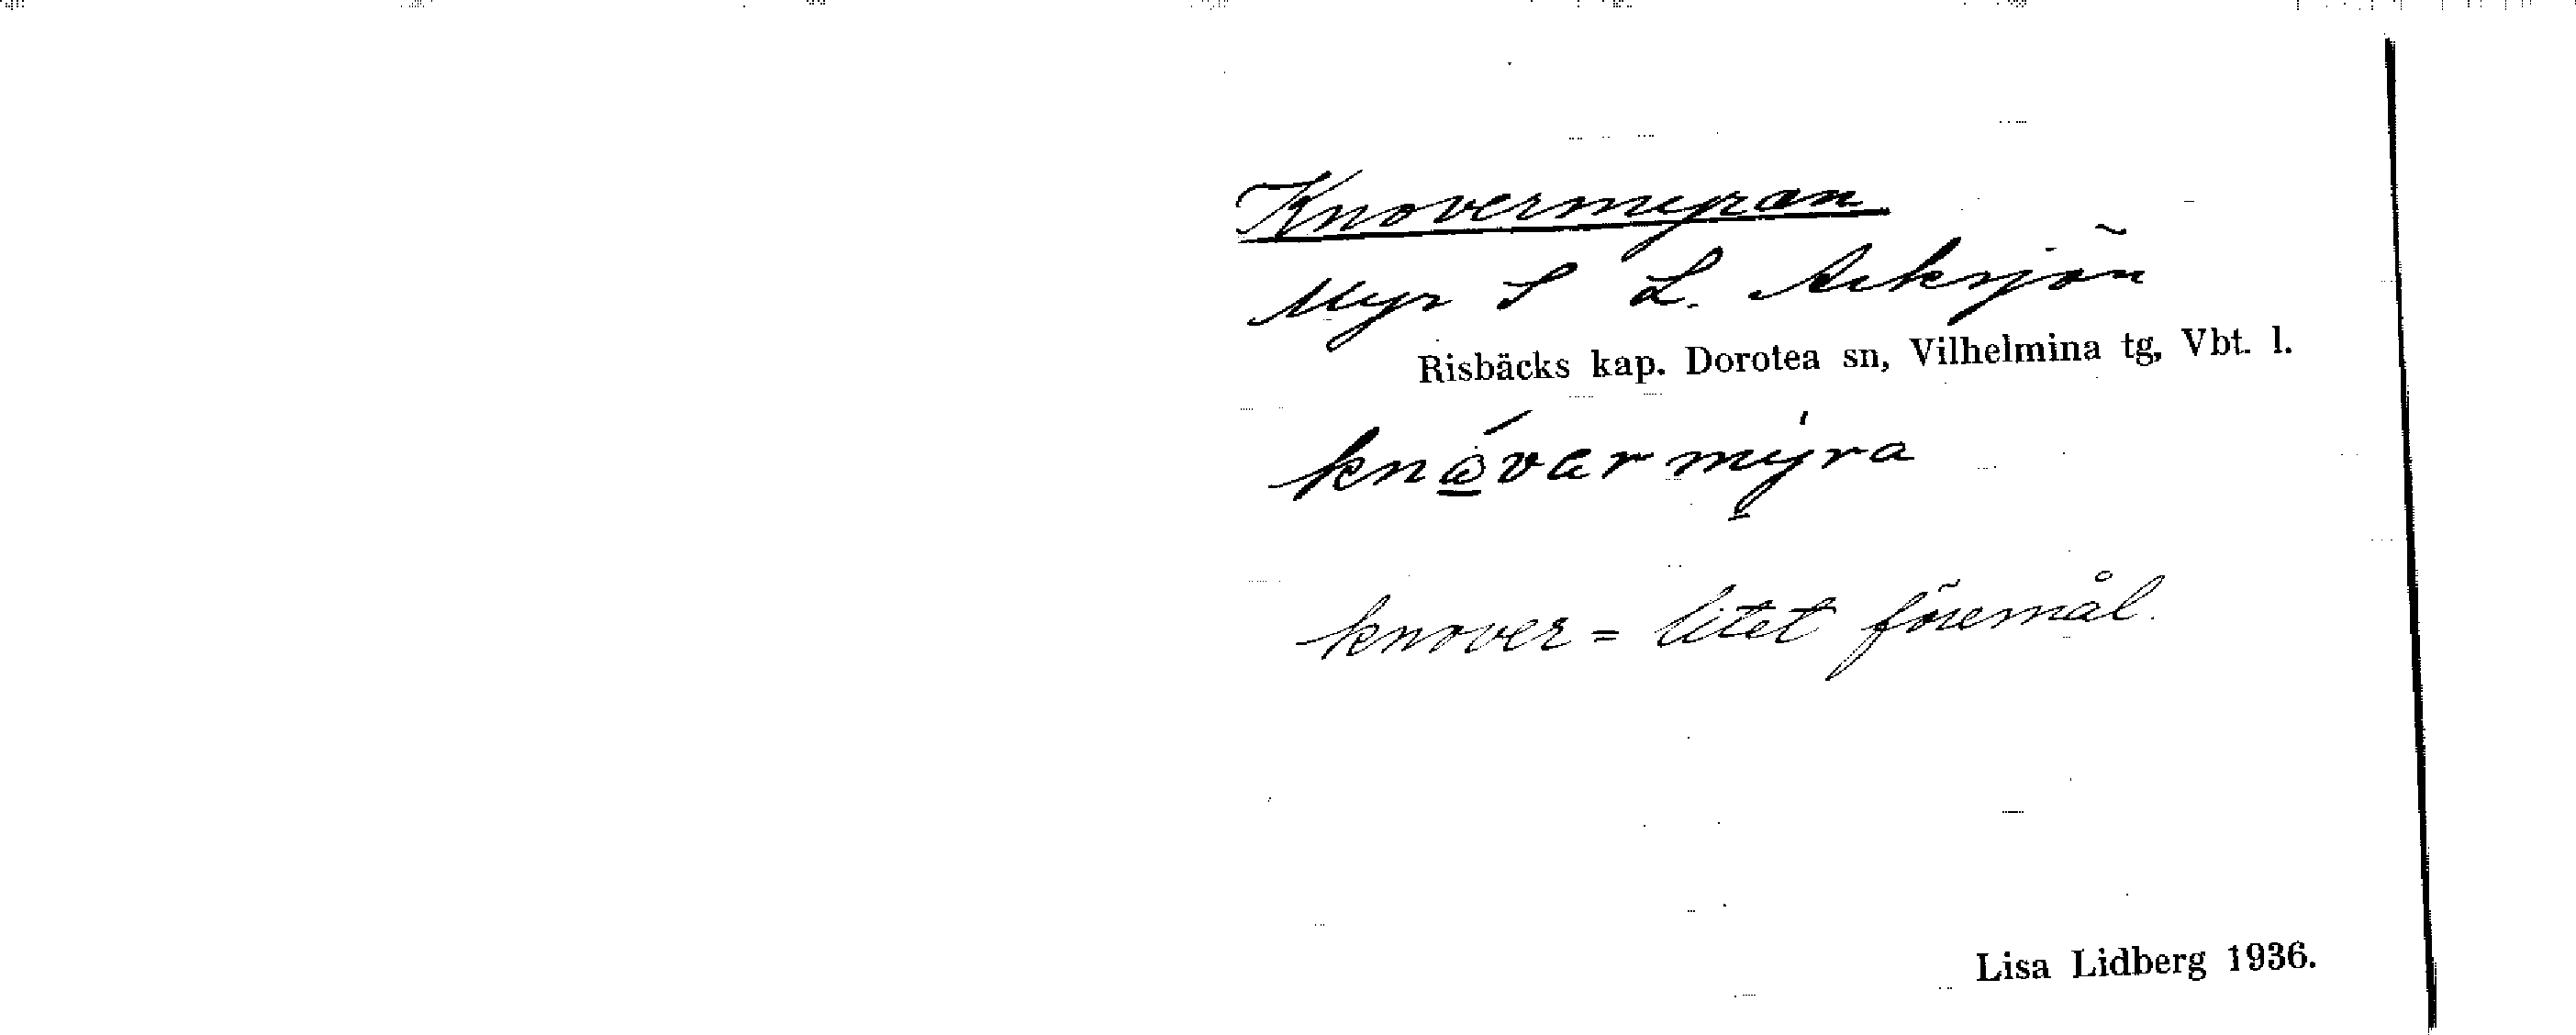 Knovermyran
Myr S L. Arksjön
Risbäcks kap. Dorotea sn, Vilhelmina tg, Vbt. l.
knåvarmyra
knover = litet föremål.
Lisa Lidberg 1936.